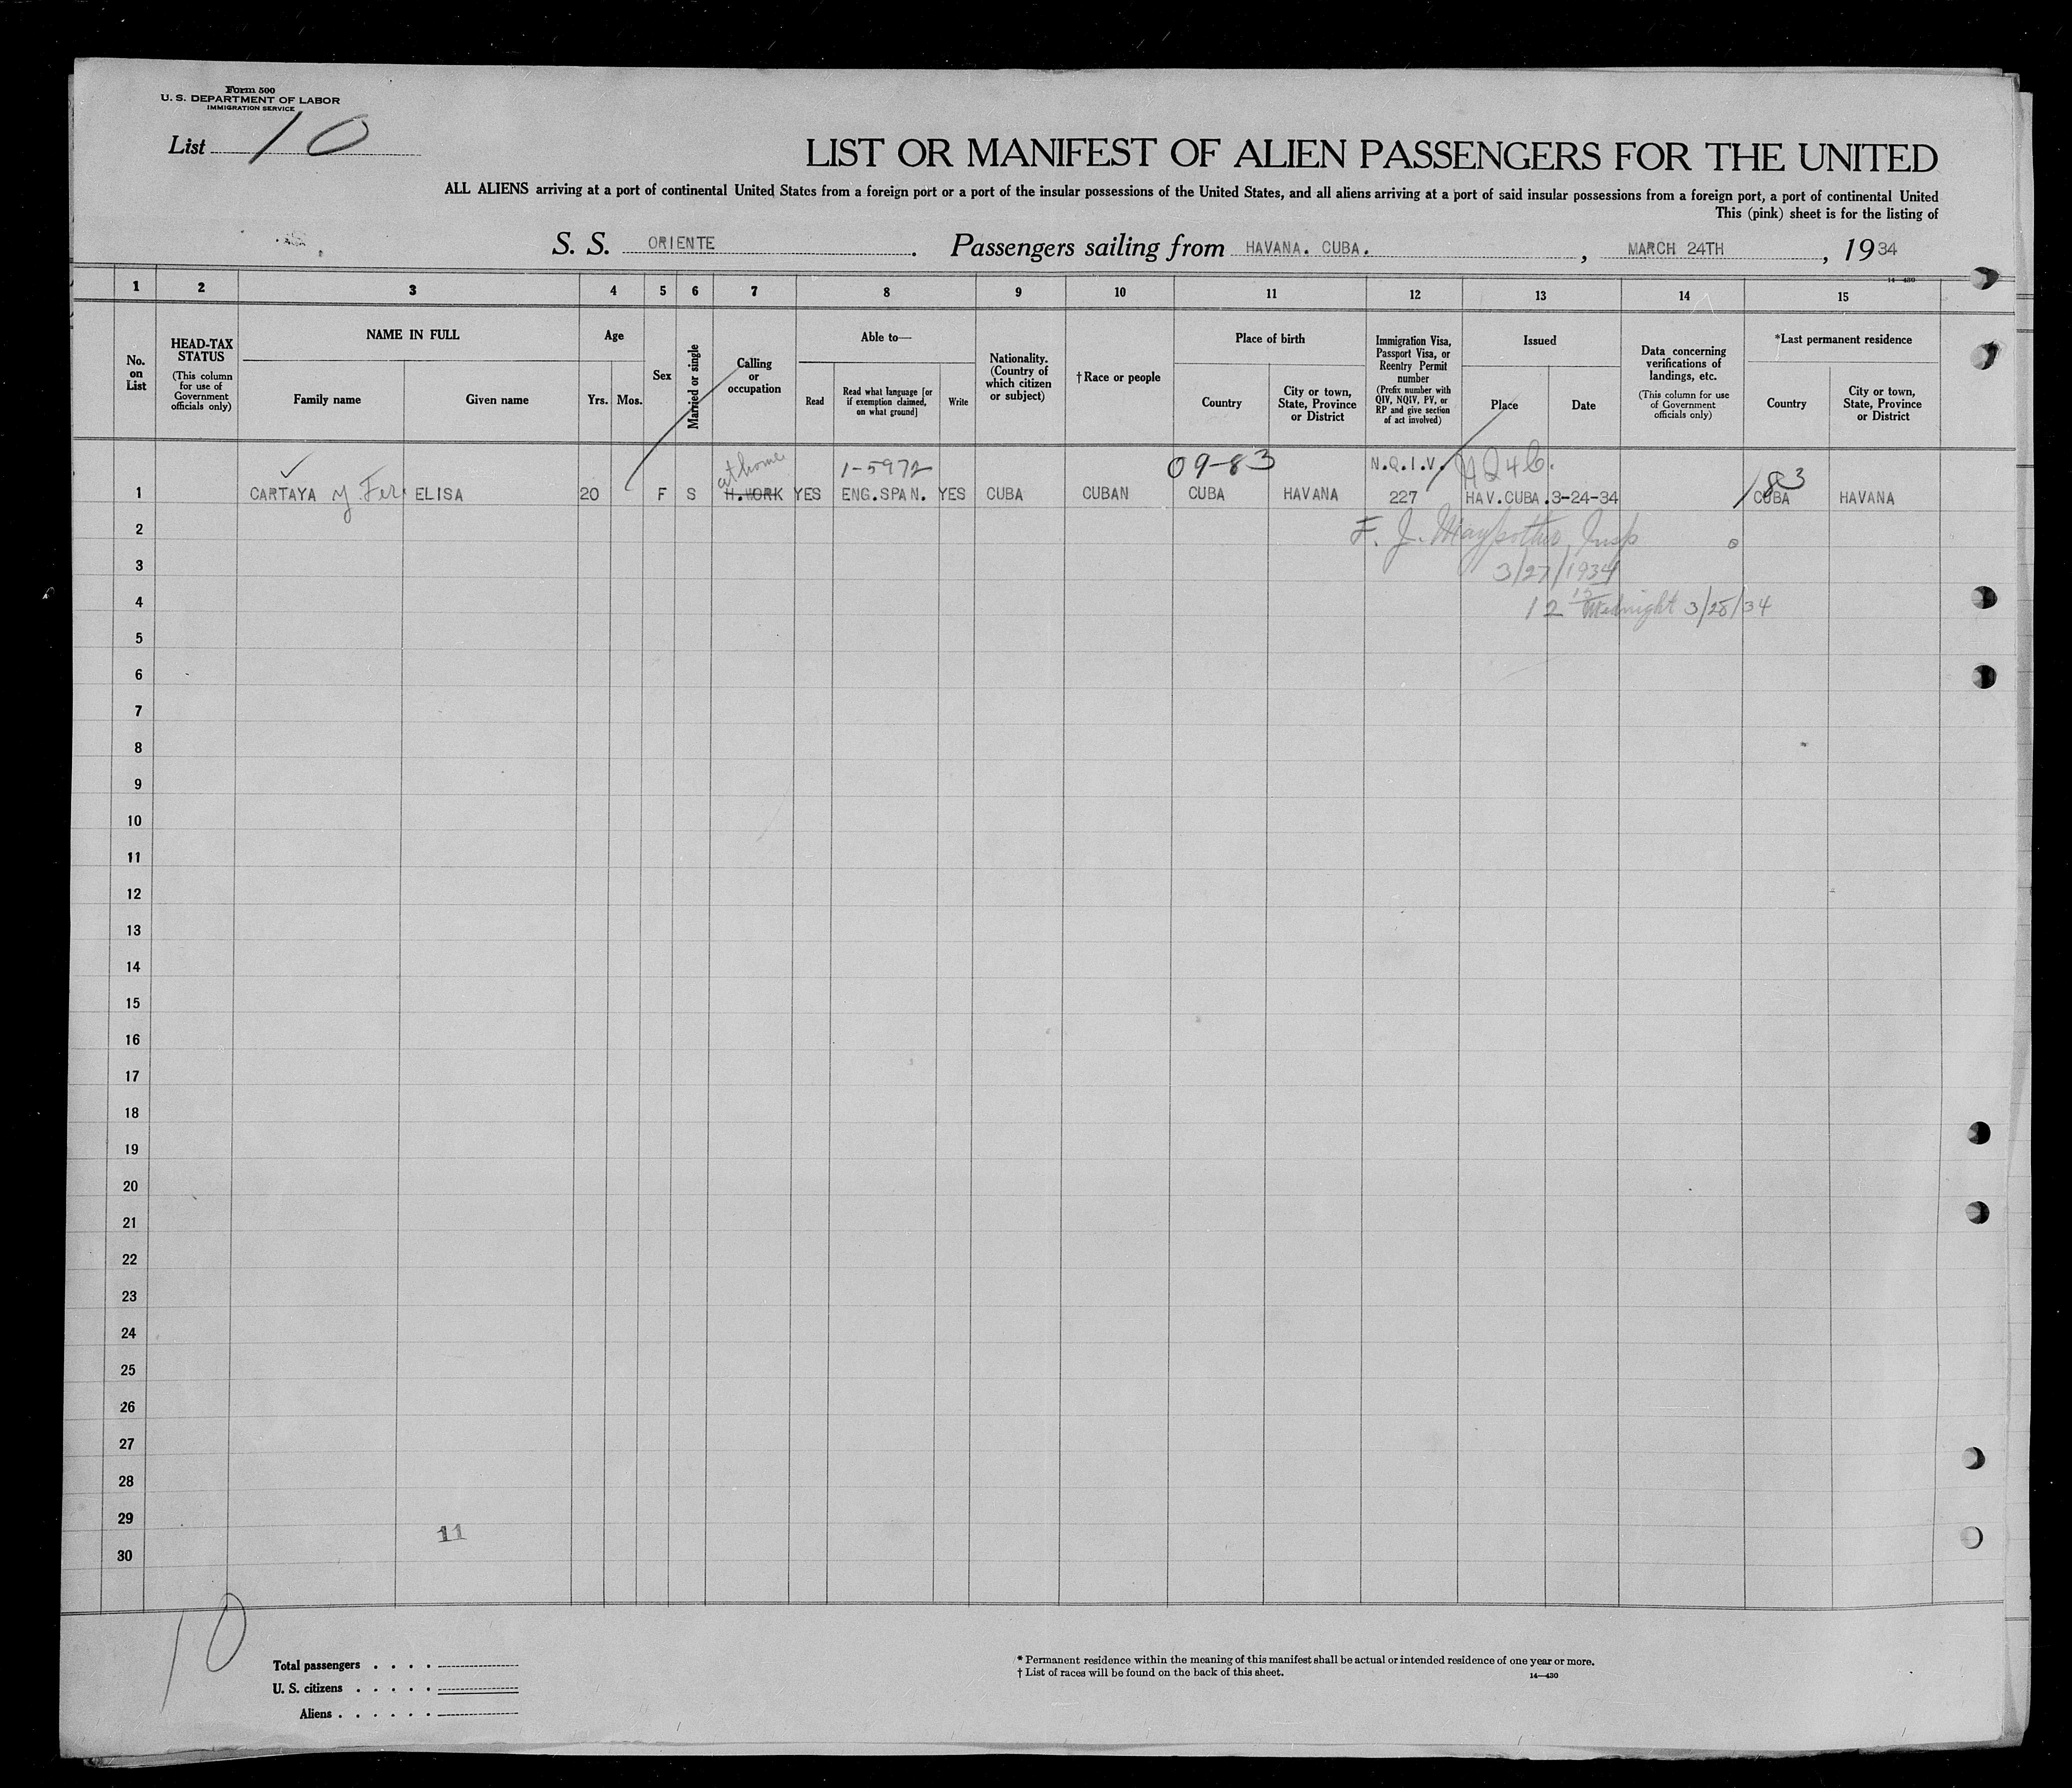 Form 500
U. S. DEPARTMENT OF LABOR
IMMIGRATION SERVICE
List 10
LIST OR MANIFEST OF ALIEN PASSENGERS FOR THE UNITED
ALL ALIENS arriving at a port of continental United States from a foreign port or a port of the insular possessions of the United States, and all aliens arriving at a port of said insular possessions from a foreign port, a port of continental United
This (pink) sheet is for the listing of
S. S. ORIENTE. Passengers sailing from HAVANA. CUBA. , MARCH 24TH , 1934
14—430
1 2 3 4 5 6 7 8 9 10 11 12 13 14 15
No. on List
HEAD-TAX STATUS
(This column for use of Government officials only)
NAME IN FULL
Family name Given name
Age
Yrs. Mos.
Sex
Married or single
Calling or occupation
Able to—
Read
Read what language [or if exemption claimed, on what ground]
Write
Nationality. (Country of which citizen or subject)
†Race or people
Place of birth
Country
City or town, State, Province or District
Immigration Visa, Passport Visa, or Reentry Permit number
(Prefix number with QIV, NQIV, PV, or RP and give section of act involved)
Issued
Place Date
Data concerning verifications of landings, etc.
(This column for use of Government officials only)
*Last permanent residence
Country
City or town, State, Province or District
at home 1-5972 09-83 N.Q.I.V. 83
1 CARTAYA y Fer ELISA 20 F S H.WORK YES ENG.SPAN. YES CUBA CUBAN CUBA HAVANA 227 HAV.CUBA. 3-24-34 CUBA HAVANA
2 F. J. Insp
3 3/27/1934
4 12 Midnight 3/28/34
5
6
7
8
9
10
11
12
13
14
15
16
17
18
19
20
21
22
23
24
25
26
27
28
29
11
30
10
Total passengers . . . .
U. S. citizens . . . . .
Aliens . . . . . .
* Permanent residence within the meaning of this manifest shall be actual or intended residence of one year or more.
† List of races will be found on the back of this sheet.
14—430